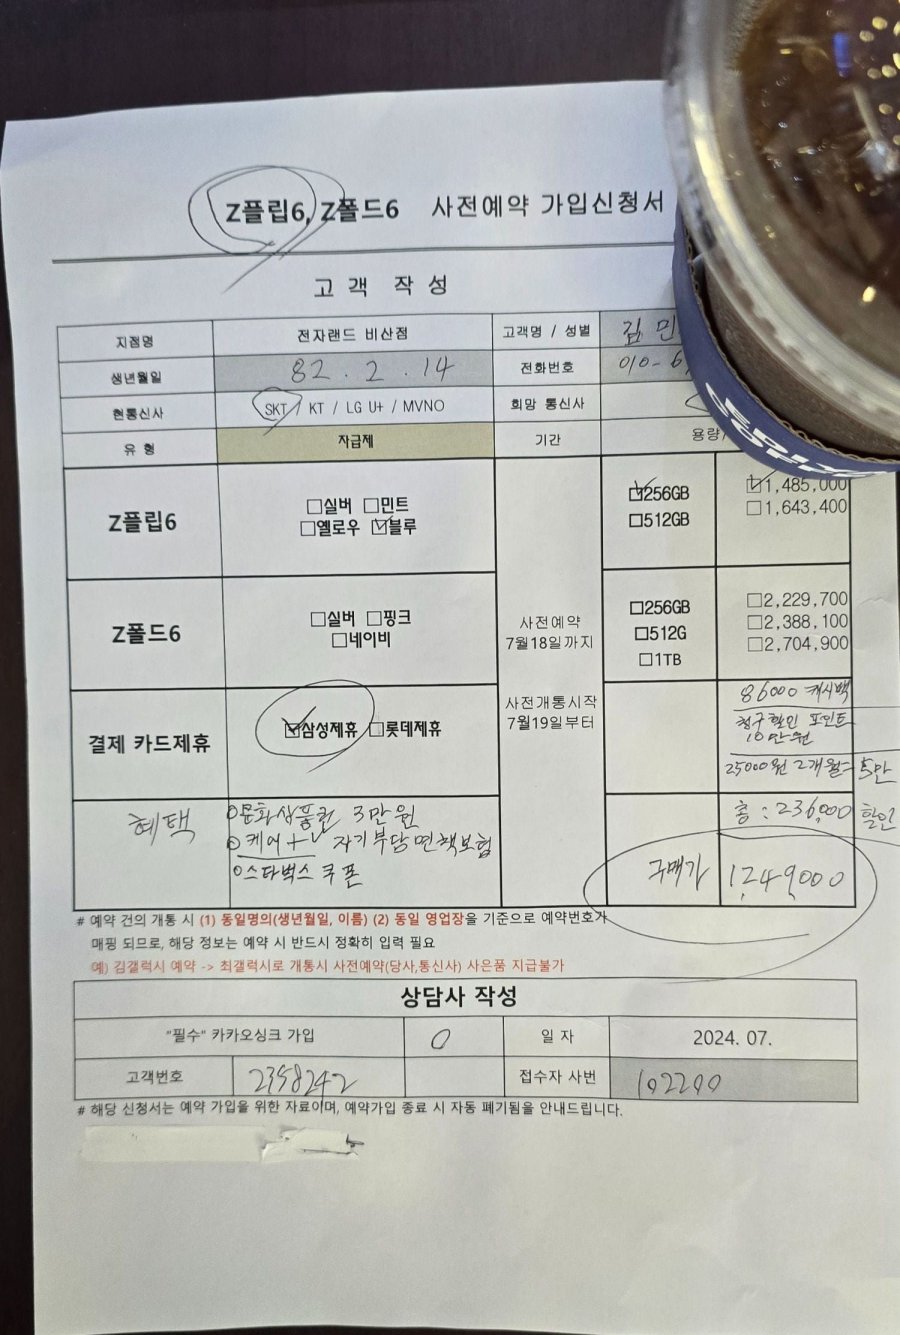 Z플립6, Z폴드6 사전예약 가입신청서
고 객 작 성
지점명 전자랜드 비산점 고객명 / 성별 김 민
생년월일 82 . 2 . 14 전화번호 010-6
현통신사 SKT / KT / LG U+ / MVNO 희망 통신사
유 형 자급제 기간 용량/
Z플립6
□실버 □민트
□옐로우 ☑블루
☑256GB ☑1,485,000
□512GB □1,643,400
Z폴드6
□실버 □핑크
□네이비
사전예약
7월18일까지
□256GB □2,229,700
□512G □2,388,100
□1TB □2,704,900
결제 카드제휴
☑삼성제휴 □롯데제휴
사전개통시작
7월19일부터
86000 캐시백
청구할인 포인트
10만원
25000원 2개월= 5만
총 : 236,000 할인
혜택
○문화상품권 3만원
○케어+ 자기부담면책보험
○스타벅스 쿠폰
구매가 1,249,000
# 예약 건의 개통 시 (1) 동일명의(생년월일, 이름) (2) 동일 영업장을 기준으로 예약번호가
매핑 되므로, 해당 정보는 예약 시 반드시 정확히 입력 필요
예) 김갤럭시 예약 -> 최갤럭시로 개통시 사전예약(당사,통신사) 사은품 지급불가
상담사 작성
"필수" 카카오싱크 가입 O 일 자 2024. 07.
고객번호 2358242 접수자 사번 102200
# 해당 신청서는 예약 가입을 위한 자료이며, 예약가입 종료 시 자동 폐기됨을 안내드립니다.